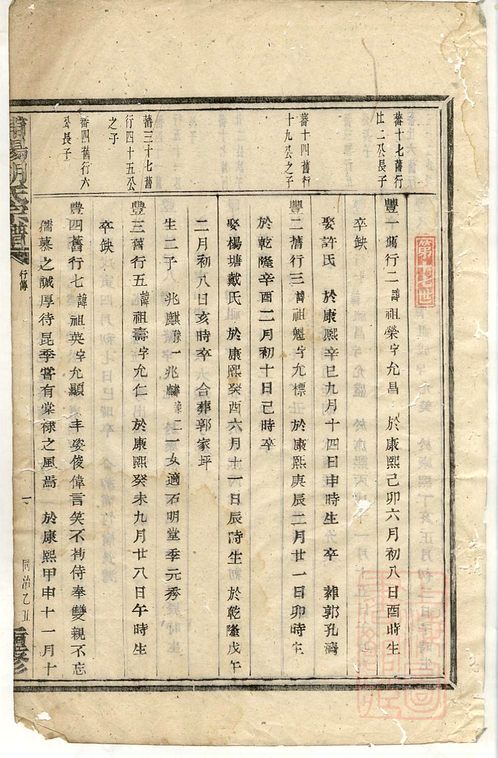 第十七世
蕃十七舊行
廿二公長子
豐一舊行二諱祖榮字允昌 於康熙己卯六月初八日酉時生
卒缺
娶許氏 於康熙辛巳九月十四日申時生 卒 葬郭孔濟
蕃十四舊行
十九公之子
豐二舊行三諱祖魁字允標 於康熙庚辰二月廿一日卯時生
於乾隆辛酉二月初十日己時卒
娶楊塘戴氏 於康熙癸酉六月十一日辰時生 於乾隆戊午
二月初八日亥時卒 合葬郭家坪
生二子 兆麒 一兆麟 二一女適石明堂季元秀
蕃三十七舊
行四十五公
之子
豐三舊行五諱祖壽字允仁 於康熙癸未九月廿八日午時生
卒缺
蕃四舊行六
公長子
豐四舊行七諱祖英字允顯 丰姿俊偉言笑不苟侍奉雙親不忘
孺慕之誠厚待昆季嘗有棠棣之風焉 於康熙甲申十一月十
宗譜
行傳
一
同治乙丑